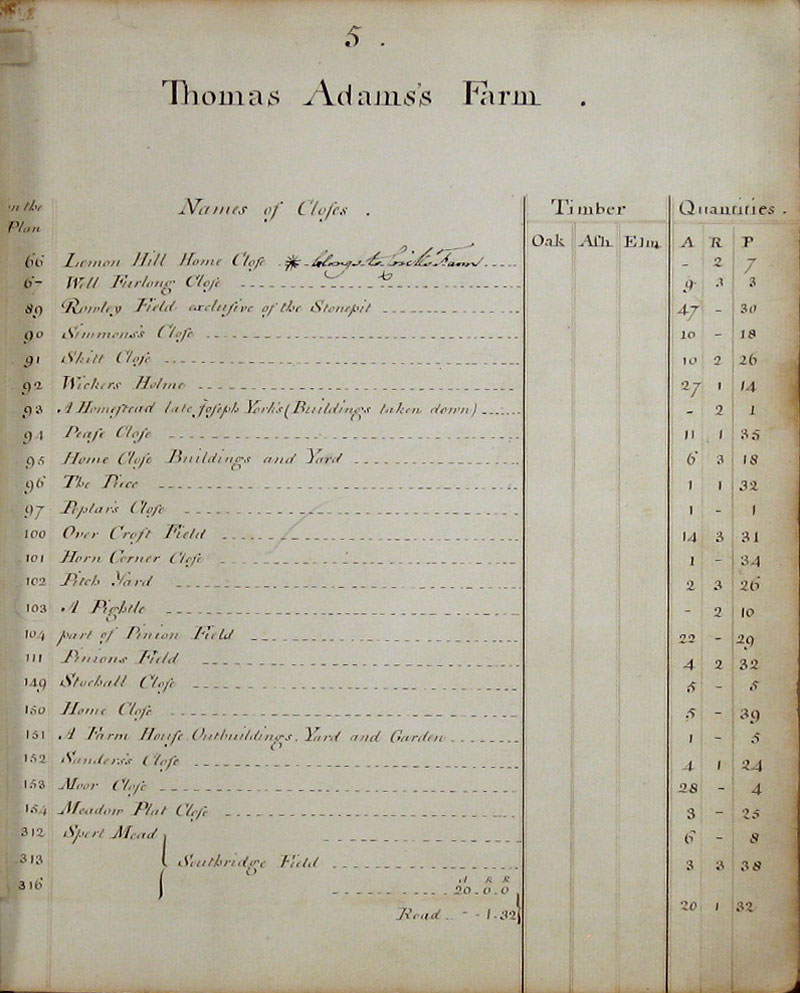 5 .
Thomas Adams's Farm .
in the
Plan
Names of Closes .
Timber
Quantities .
Oak Ash Elm
A R P
66 Lemon Hill Home Close * belongs to Farm - 2 7
6- Well Furlong Close 9 3 3
89 Rowley Field exclusive of the Stonepit 47 - 30
90 Simmons's Close 10 - 18
91 Skill Close 10 2 26
92 Wickers Holme 27 1 14
93 A Homestead late Joseph York's (Buildings taken down) - 2 1
94 Pease Close 11 1 35
95 Home Close Buildings and Yard 6 3 18
96 The Piece 1 1 32
97 Poplars Close 1 - 1
100 Over Croft Field 14 3 31
101 Horn Corner Close 1 - 34
102 Pitch Yard 2 3 26
103 A Pightle - 2 10
104 part of Pinion Field 22 - 29
111 Pinions Field 4 2 32
149 Close 5 - 5
150 Home Close 5 - 39
151 A Farm House Outbuildings. Yard and Garden 1 - 5
152 Sanders's Close 4 1 24
153 Moor Close 28 - 4
154 Meadow Plat Close 3 - 25
312 Spert Mead 6 - 8
313 Southridge Field 3 3 38
316 A R R
20 . 0 . 0
Road .. - - 1 . 32 20 1 32